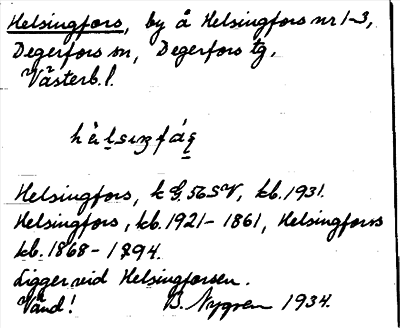 Helsingfors, by å Helsingfors nr 1-3,
Degerfors sn, Degerfors tg,
Västerb. l.
Helsingfors, k G. 56 SV, kb. 1931.
Helsingfors, kb. 1921-1861, Helsingforss
kb. 1868-1894.
Ligger vid Helsingforsen.
Vänd! B. Nygren 1934.